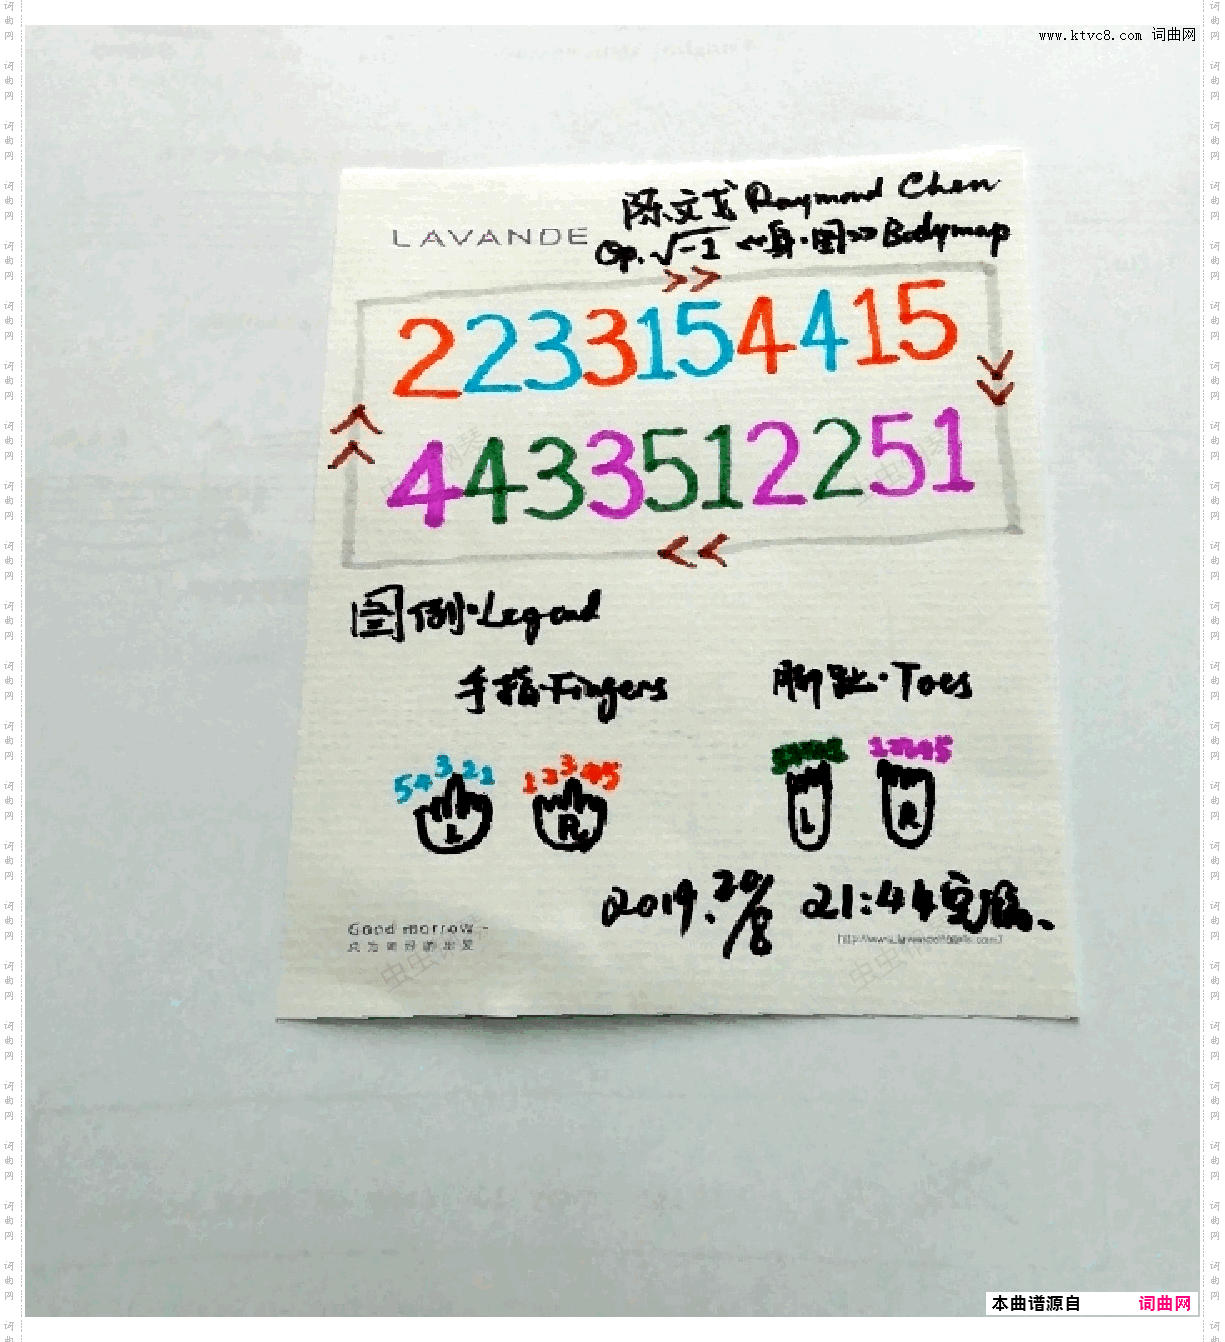 www.ktvc8.com 词曲网
陈文戈 Raymond Chen
LAVANDE
Op. √-1 《身·图》 Bodymap
>> 
2233154415
4433512251
<<
图例·Legend
手指·Fingers
脚趾·Toes
54321
12345
54321
12345
L
R
L
R
2019.20/8 21:44
Good morrow -
http://www.lavandehotels.com/
本曲谱源自 词曲网